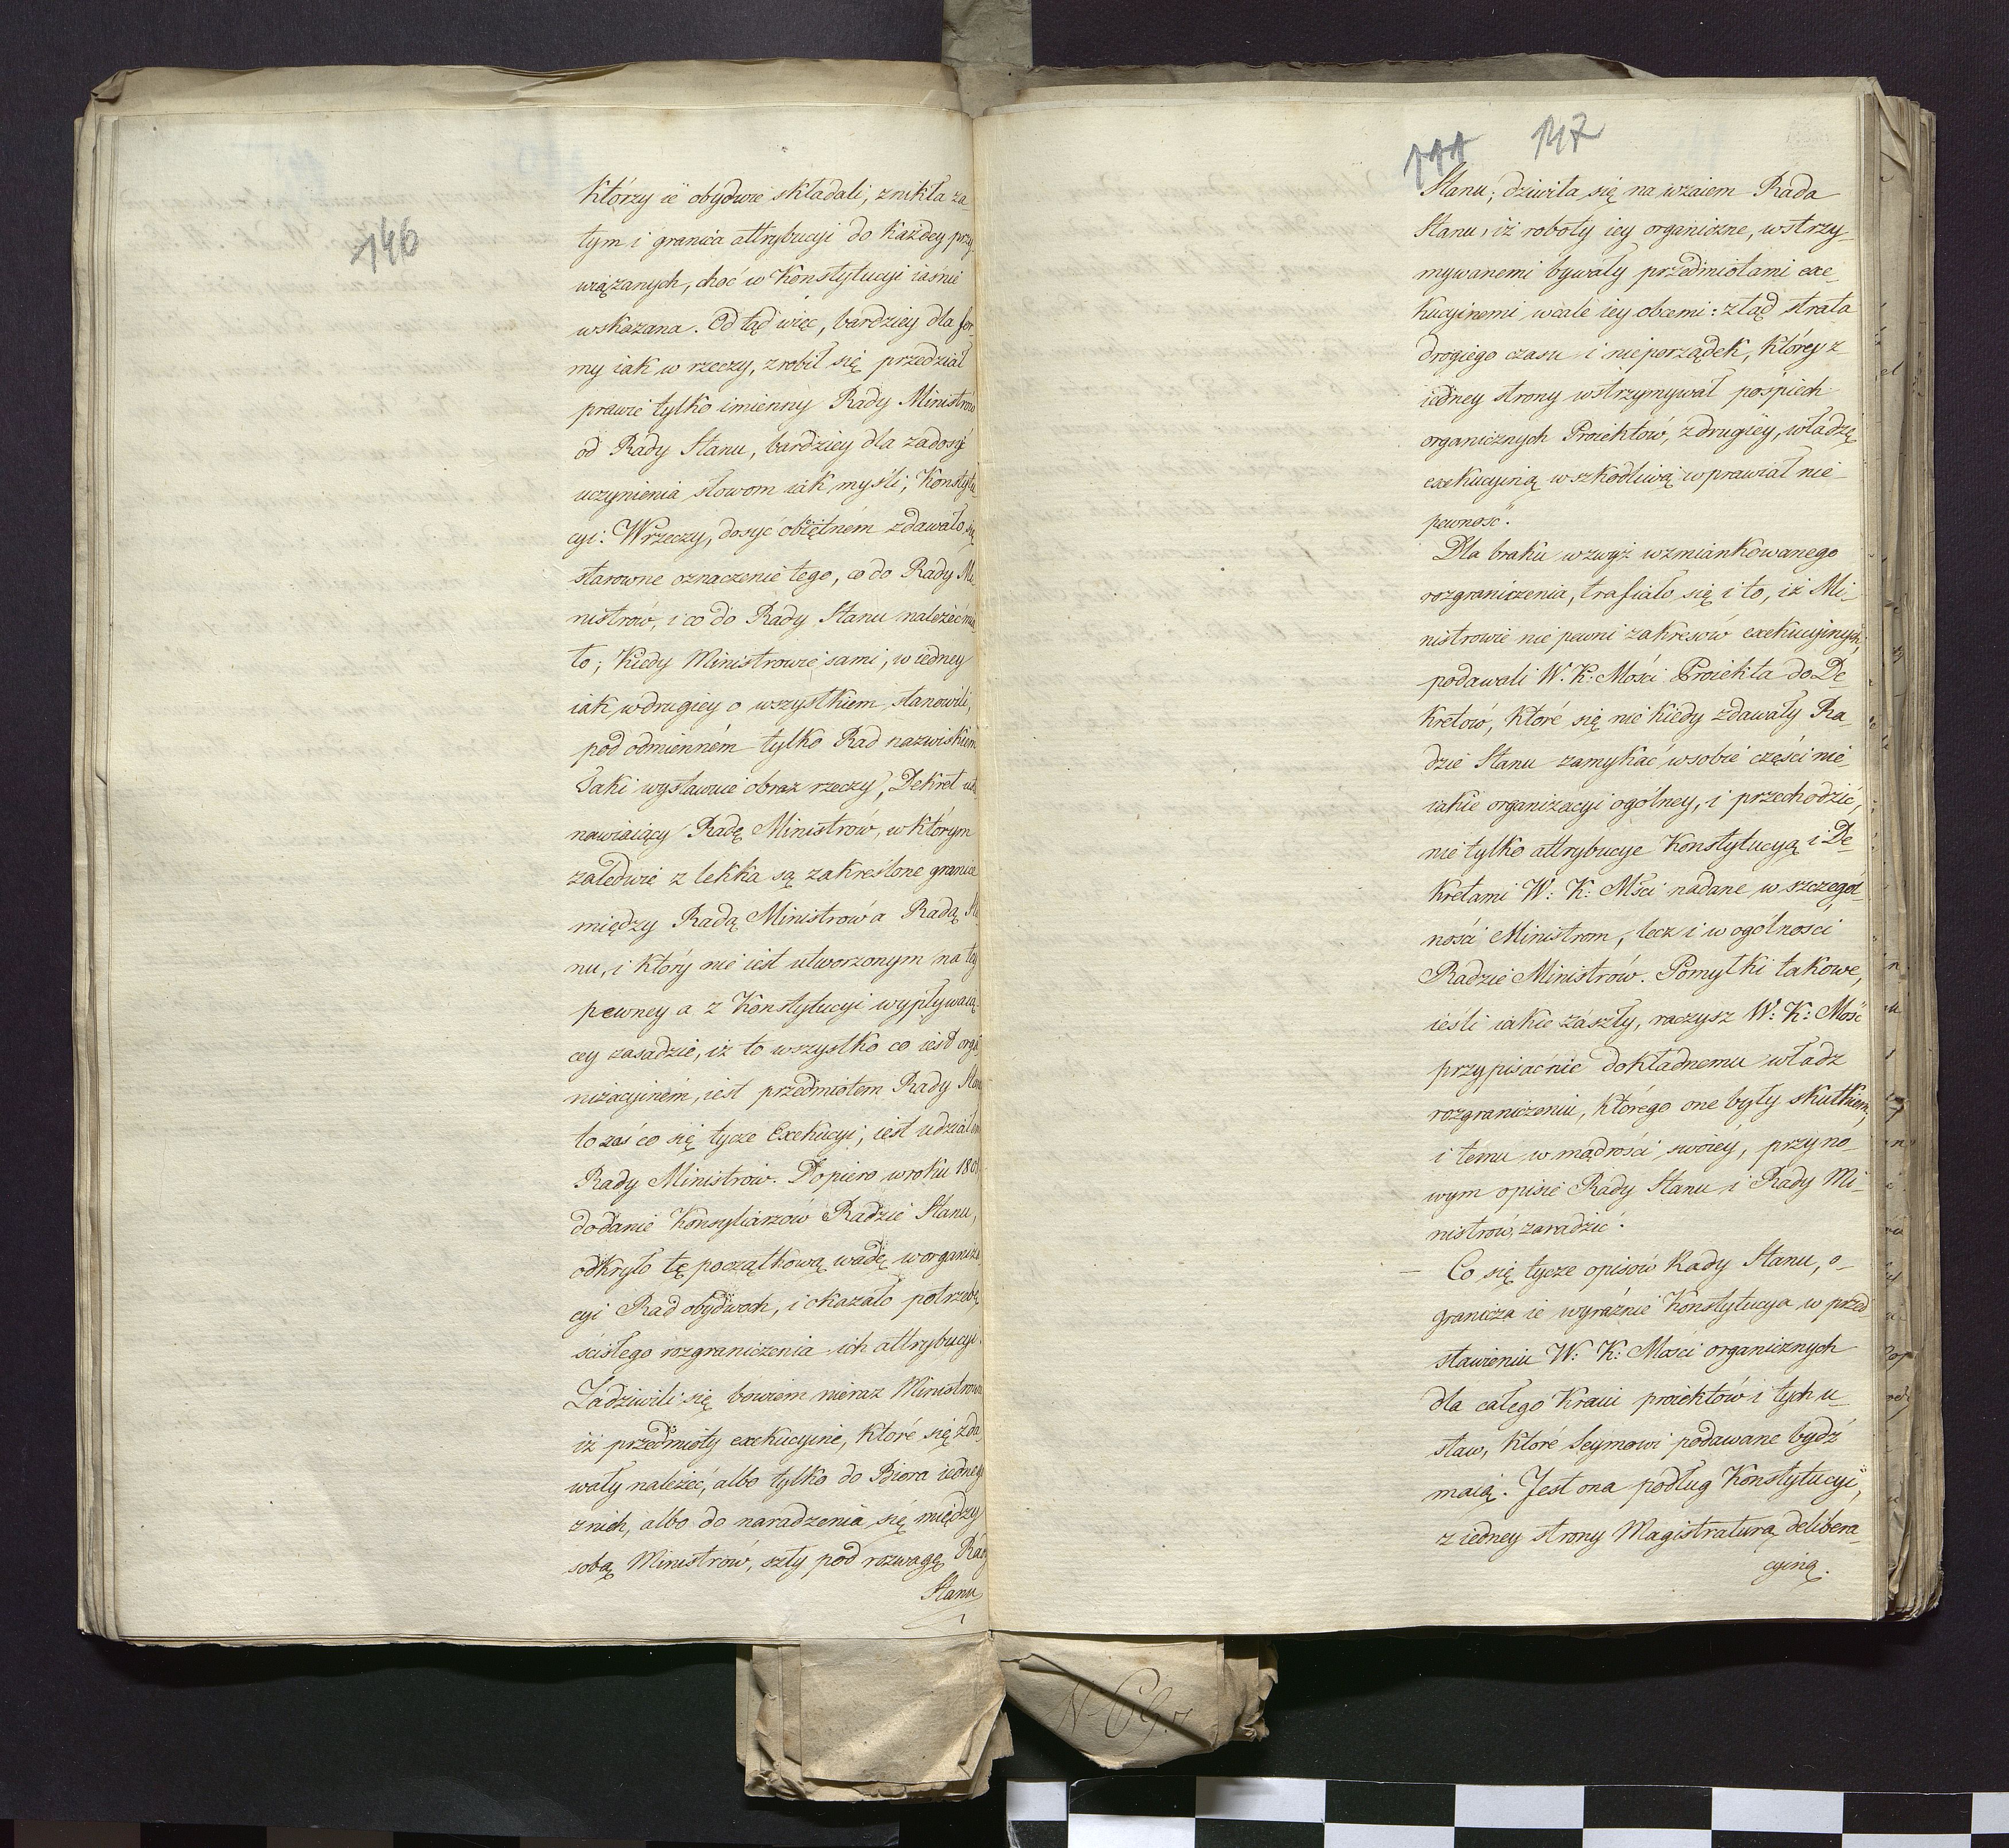 146
którzy ie obydwie składali, znikła za-
tym i granica attrybucyi do każdey przy
wiązanych, choć w Konstytucyi iaśnie
wskazana. Odtąd więc, bardziey dla for
my iak w rzeczy, zrobił się przedział
prawie tylko imienny Rady Ministrów
od Rady Stanu, bardziey dla zadosyć
uczynienia słowom iak myśli, Konstytu
cyi: W rzeczy, dosyć obiętném zdawało się
starowne oznaczenie tego, co do Rady Mi
nistrów, i co do Rady Stanu należeć mia
ło; kiedy Ministrowie sami, w iedney
iak w drugiey o wszystkiem stanowili,
pod odmienném tylko Rad nazwiskiem
Taki wystawuie obraz rzeczy, Dekret usta
nawiaiący Radę Ministrów, w którym
zaledwie z lekka są zakreślone granice
między Radą Ministrów a Radą Sta
nu, i który nie iest utworzonym na tey
pewney a z Konstytucyi wypływaią
cey zasadzie, iż to wszystko co iest orga
nizacyiném, iest przedmiotem Rady Stanu
to zaś co się tycze Exekucyi, iest udziałem
Rady Ministrów. Dopiero w roku 180
dodanie Konsyliarzów Radzie Stanu,
odkryło tę początkową wadę w organiza
cyi Rad obydwoch, i okazało potrzebę
ścisłego rozgraniczenia ich attrybucyi.
Zadziwili się bowiem nieraz Ministrowie
iż przedmioty exekucyine, które się zda
wały należeć, albo tylko do Biora iednego
z nich, albo do naradzenia się między
sobą Ministrów, szły pod rozwagę Rady
Stanu
111 147
Stanu; dziwiła się na wzaiem Rada
Stanu, iż roboty iey organiczne, wstrzy-
mywanemi bywały przedmiotami exe-
kucyinemi wcale iey obcemi: ztąd strata
drogiego czasu i nieporządek, który z
iedney strony wstrzymywał pośpiech
organicznych Proiektów, z drugiey, władzę
exekucyiną w szkodliwą wprawiał nie-
pewność.
Dla braku wzwyż wzmiankowanego
rozgraniczenia, trafiało się i to, iż Mi-
nistrowie nie pewni zakresów exekucyinych,
podawali W. K: Mości Proiekta do De-
kretów, które się nie kiedy zdawały Ra-
dzie Stanu zamykać w sobie części nie-
iakie organizacyi ogólney, i przechodzić,
nie tylko attrybucye Konstytucyą i De-
kretami W: K: Mści nadane w szczegól-
ności Ministrom, lecz i w ogólności
Radzie Ministrów. Pomyłki takowe,
ieśli iakie zaszły, raczysz W: K: Mość
przypisać nie dokładnemu władz
rozgraniczeniu, którego one były skutkiem,
i temu w mądrości swoiey, przy no-
wym opisie Rady Stanu i Rady Mi-
nistrów, zaradzić.
— Co się tycze opisów Rady Stanu, o-
granicza ie wyraźnie Konstytucya w przed
stawieniu W: K: Mości organicznych
dla całego Kraiu proiektów i tych u-
staw, które Seymowi podawane bydź
maią. Jest ona podług Konstytucyi,
z iedney strony Magistraturą delibera-
cyiną.